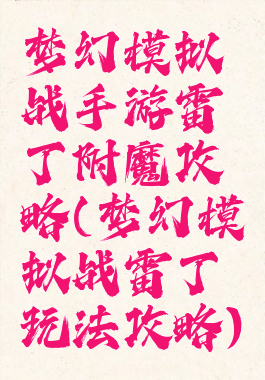 梦幻模拟
战手游雷
丁附魔攻
略(梦幻模
拟战雷丁
玩法攻略)